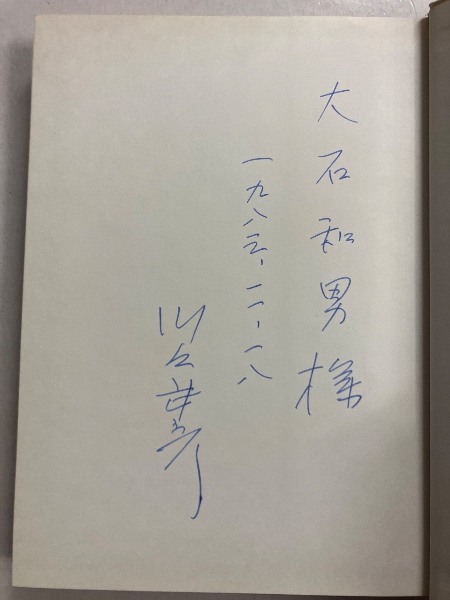 大石和男様
一九八三、一一、一八
川